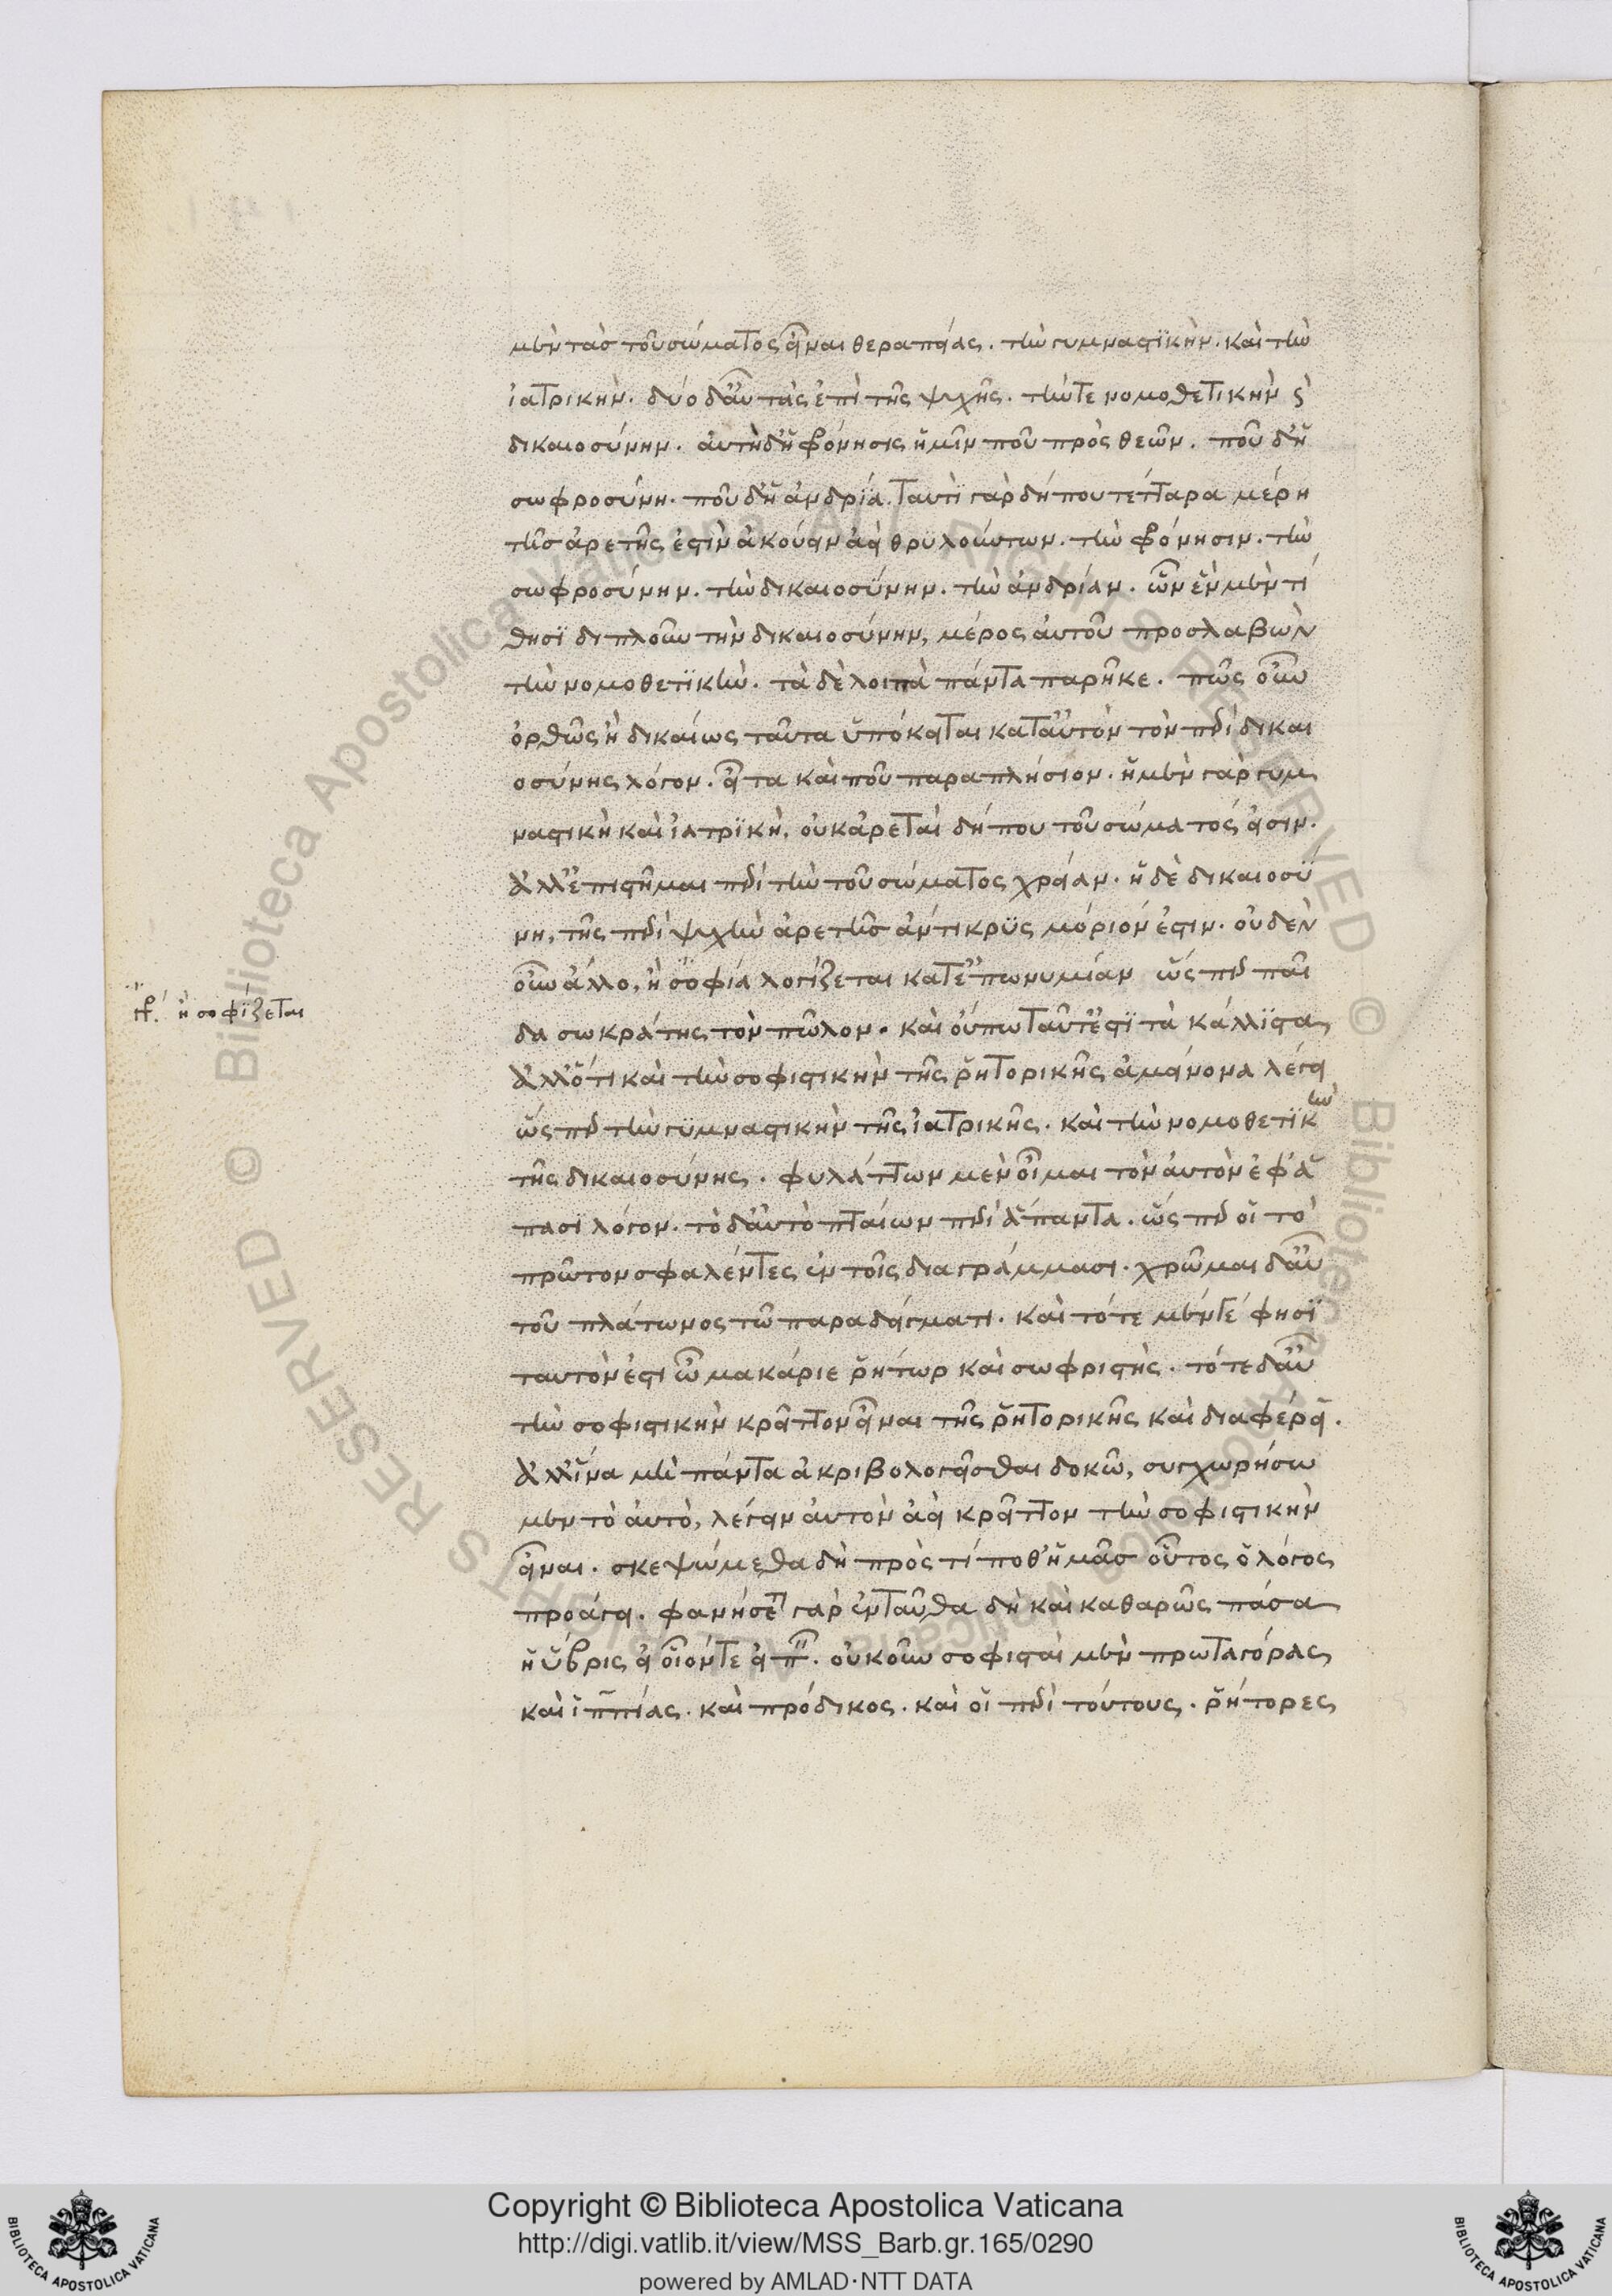 μὲν τὰς τοῦ σώματος εἶναι θεραπείας. τὴν γυμναστικὴν. καὶ τὴν
ἰατρικὴν. δύο δ' αὖ τὰς ἐπὶ τῆς ψυχῆς. τήν τε νομοθετικὴν ϛ̀
δικαιοσύνην. αὐτὴ δ' ἡ φρόνησις ἡμῖν ποῦ πρὸς θεῶν. ποῦ δ' ἡ
σωφροσύνη. ποῦ δ' ἡ ἀνδρία. ταυτὶ γὰρ δήπου τέτταρα μέρη
τῆς ἀρετῆς ἐστὶν ἀκούειν ἀεὶ θρυλούντων. τὴν φρόνησιν. τὴν
σωφροσύνην. τὴν δικαιοσύνην. τὴν ἀνδρίαν. ὧν ἓν μὲν τί
θησι διπλοῦν τὴν δικαιοσύνην, μέρος αὐτοῦ προσλαβὼν
τὴν νομοθετικὴν. τὰ δὲ λοιπὰ πάντα παρῆκε. πῶς οὖν
ὀρθῶς ἢ δικαίως ταῦτα ὑπόκειται κατ' αὐτὸν τὸν περὶ δικαι
οσύνης λόγον. εἶτα καὶ ποῦ παραπλήσιον. ἡ μὲν γὰρ γυμ
ναστικὴ καὶ ἰατρικὴ, οὐκ ἀρεταὶ δήπου τοῦ σώματός εἰσιν.
ἀλλ' ἐπιστῆμαι περὶ τὴν τοῦ σώματος χρείαν. ἡ δὲ δικαιοσύ
νη, τῆς περὶ ψυχὴν ἀρετῆς ἀντικρὺς μόριόν ἐστιν. οὐδὲν
οὖν ἄλλο, ἢ σοφία λογίζεται κατ' ἐπωνυμίαν ὥσπερ παῖ
γρ. ἢ σοφίζεται
δα σωκράτης τὸν πῶλον. καὶ οὔπω ταῦτ' ἐστὶ τὰ κάλλιστα,
ἀλλ' ὅτι καὶ τὴν σοφιστικὴν τῆς ῥητορικῆς ἀμείνονα λέγει
ὥσπερ τὴν γυμναστικὴν τῆς ἰατρικῆς. καὶ τὴν νομοθετικὴν
τῆς δικαιοσύνης. φυλάττων μὲν οἶμαι τὸν αὐτὸν ἐφ' ἅ
πασι λόγον. τὸ δ' αὐτὸ πταίων περὶ ἅπαντα. ὥσπερ οἱ τὸ
πρῶτον σφαλέντες ἐν τοῖς διαγράμμασι. χρῶμαι δ' αὖ
τοῦ πλάτωνος τῶ παραδείγματι. καὶ τότε μέντε φησὶ
ταυτὸν ἐστι ὦ μακάριε ῥήτωρ καὶ σωφριστὴς. τότε δ' αὖ
τὴν σοφιστικὴν κρεῖττον εἶναι τῆς ῥητορικῆς καὶ διαφέρει.
ἀλλ' ἵνα μὴ πάντα ἀκριβολογεῖσθαι δοκῶ, συγχωρήσω
μεν τὸ αὐτὸ, λέγειν αὐτὸν ἀεὶ κρεῖττον τὴν σοφιστικὴν
εἶναι. σκεψώμεθα δὴ πρὸς τί ποθ' ἡμᾶς οὗτος ὁ λόγος
προάγει. φανήσεται γὰρ ἐνταῦθα δὴ καὶ καθαρῶς πάσα
ἡ ὕβρις εἰ οἷόν τε εἰπεῖν. οὐκοῦν σοφισταὶ μὲν πρωταγόρας
καὶ ἱππίας. καὶ πρόδικος. καὶ οἱ περὶ τούτους. ῥήτορες
Copyright © Biblioteca Apostolica Vaticana
http://digi.vatlib.it/view/MSS_Barb.gr.165/0290
powered by AMLAD·NTT DATA